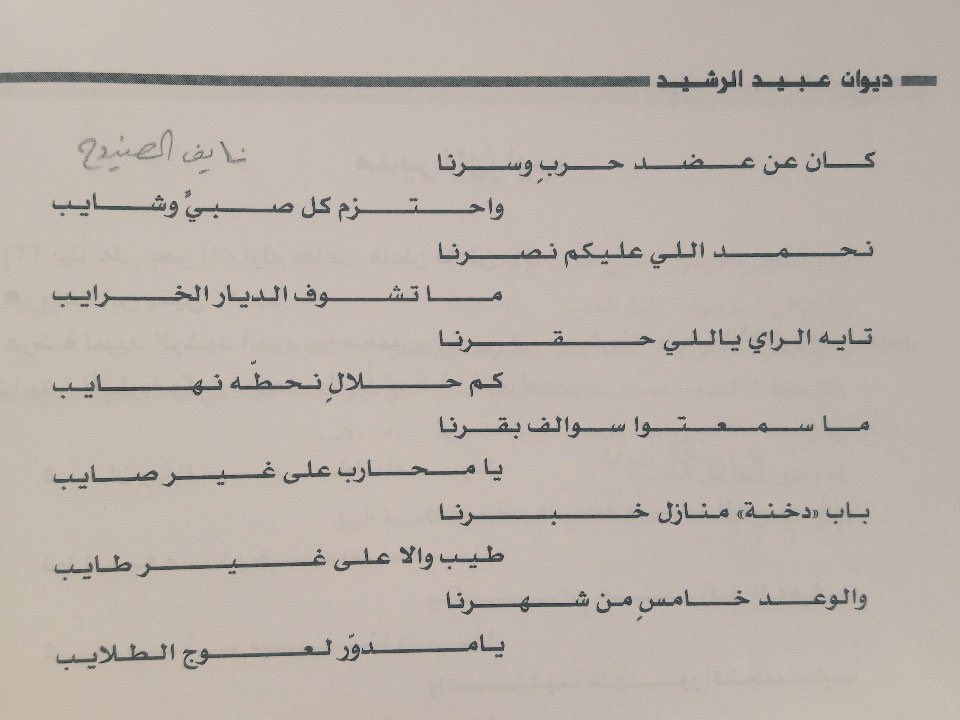 ديوان عبيد الرشيد
نايف الصنيدح
كان عن عضد حربٍ وسرنا
واحتزم كل صبيٍّ وشايب
نحمد اللي عليكم نصرنا
ما تشوف الديار الخرايب
تايه الراي ياللي حقرنا
كم حلالٍ نحطّه نهايب
ما سمعتوا سوالف بقرنا
يا محارب على غير صايب
باب «دخنة» منازل خبرنا
طيب والا على غير طايب
والوعد خامسٍ من شهرنا
يامدوّر لعوج الطلايب